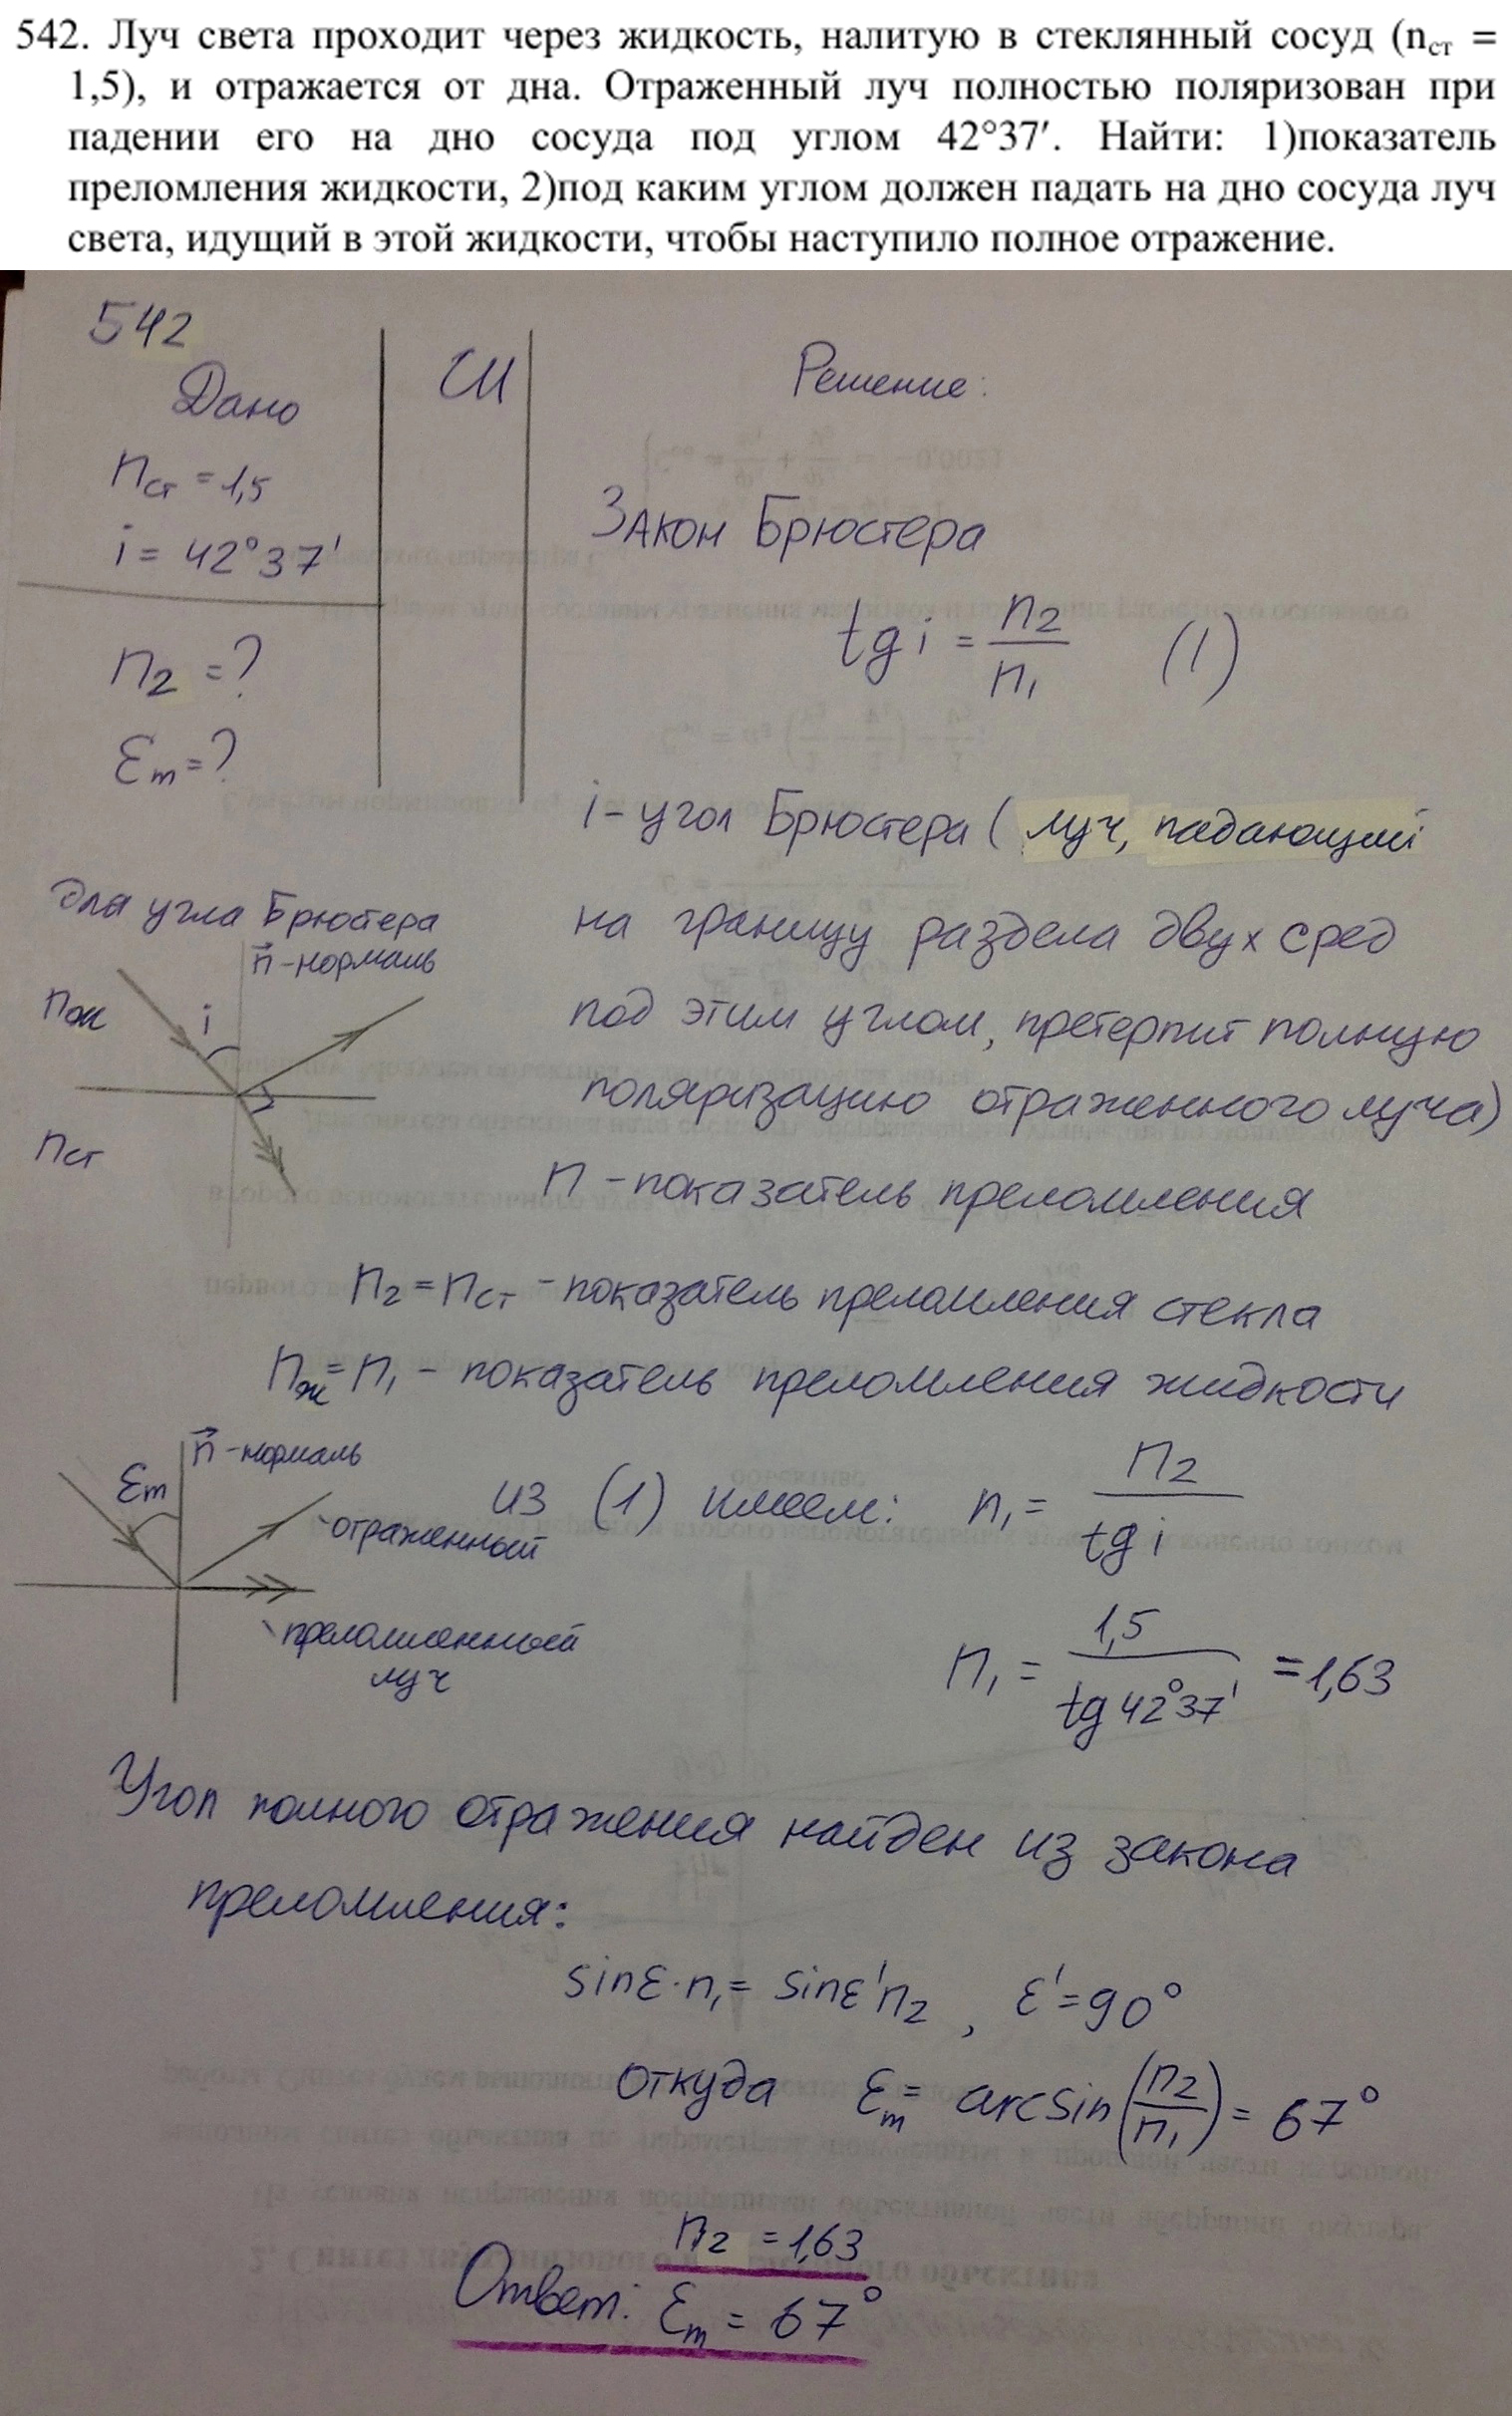 542. Луч света проходит через жидкость, налитую в стеклянный сосуд (nст =
1,5), и отражается от дна. Отраженный луч полностью поляризован при
падении его на дно сосуда под углом 42°37′. Найти: 1)показатель
преломления жидкости, 2)под каким углом должен падать на дно сосуда луч
света, идущий в этой жидкости, чтобы наступило полное отражение.
542
Дано
СИ
Решение:
nст = 1,5
i = 42°37'
n2 = ?
εm = ?
Закон Брюстера
tg i = n2/n1 (1)
i - угол Брюстера (луч, падающий
на границу раздела двух сред
под этим углом, претерпит полную
поляризацию отраженного луча)
Для угла Брюстера
n⃗ - нормаль
nж
i
nст
n - показатель преломления
n2 = nст - показатель преломления стекла
nж = n1 - показатель преломления жидкости
n⃗ - нормаль
εm
отраженный
преломленный
луч
из (1) имеем: n1 = n2/tg i
n1 = 1,5/tg 42°37' = 1,63
Угол полного отражения найден из закона
преломления:
sinε·n1 = sinε'n2, ε' = 90°
откуда εm = arcsin(n2/n1) = 67°
n2 = 1,63
Ответ: εm = 67°